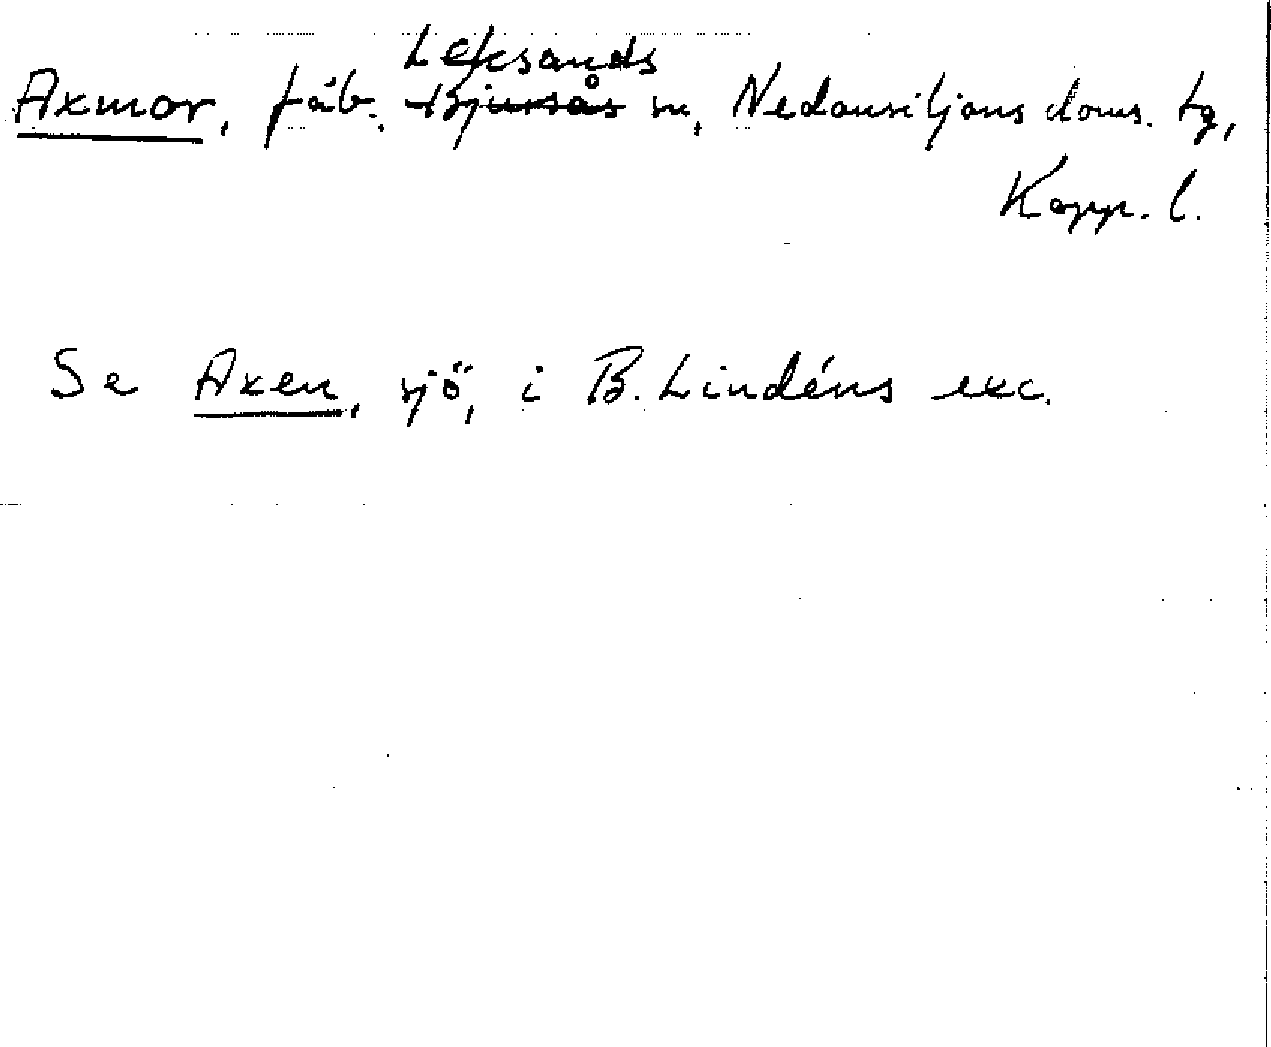 Leksands
Axmor, fäb., Bjursås sn, Nedansiljans doms. tg,
Kopp. l.
Se Axen, sjö, i B. Lindéns exc.